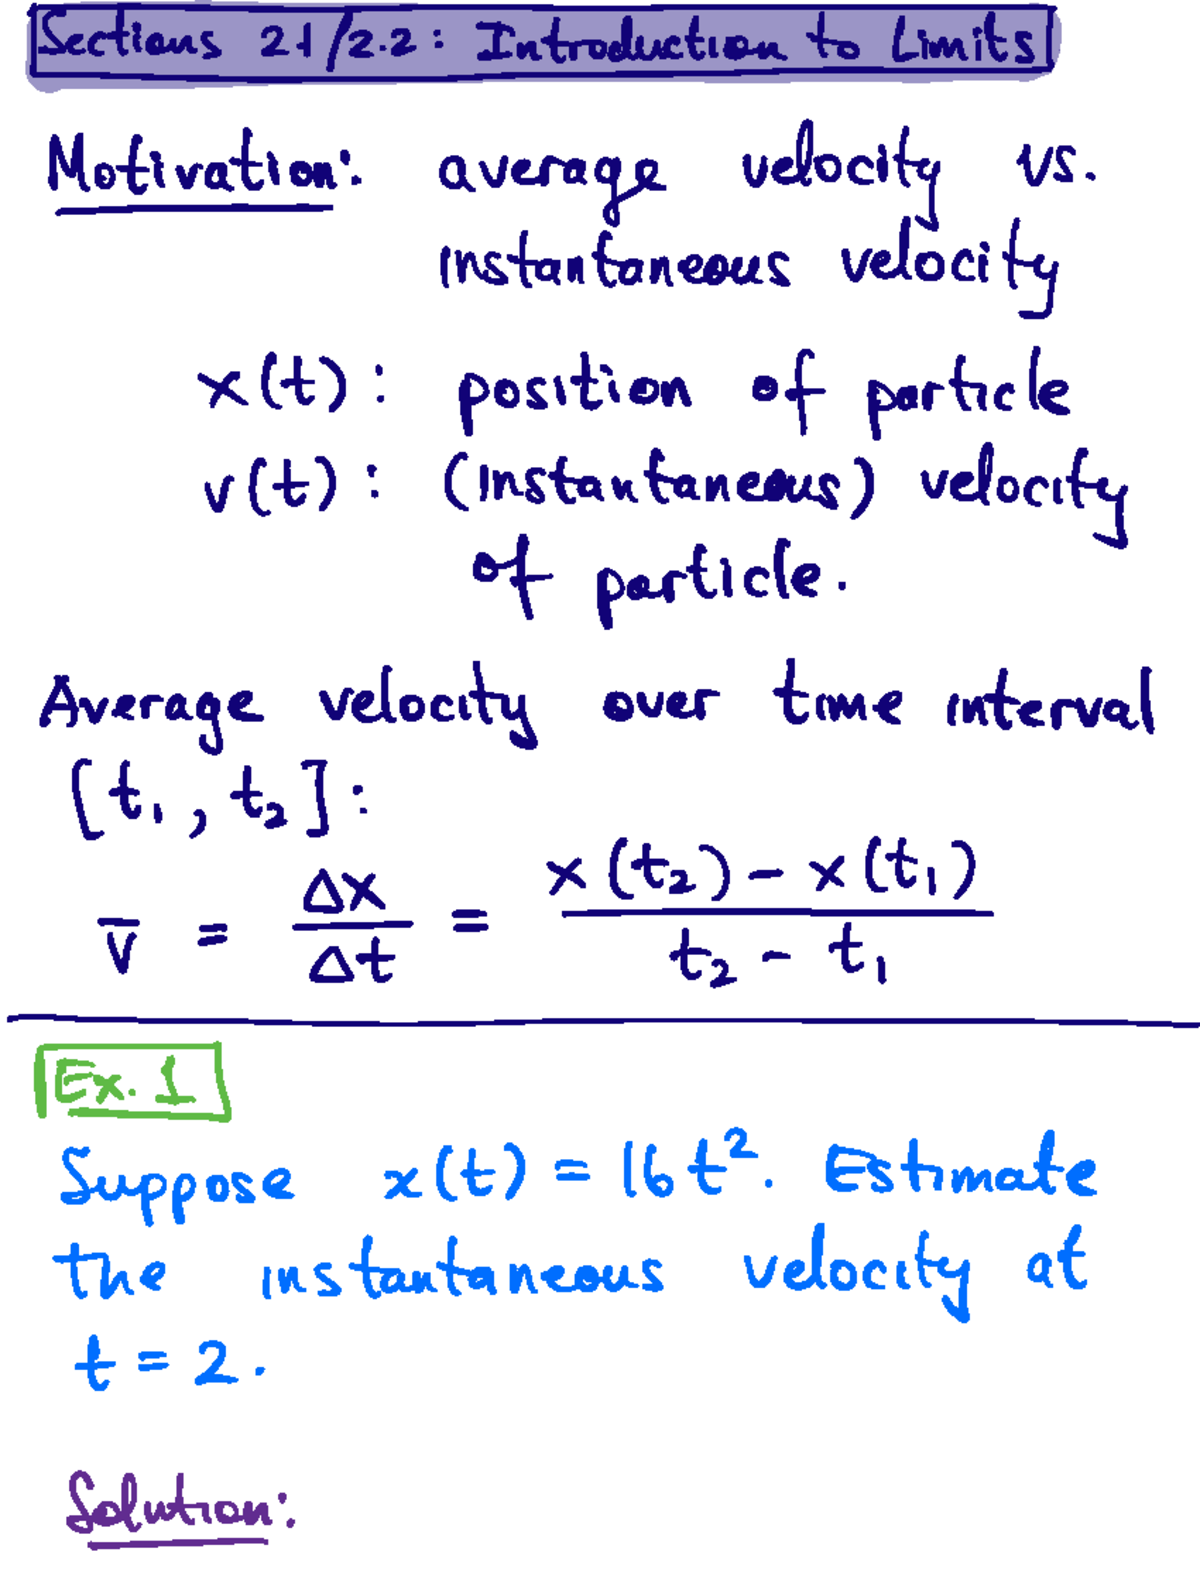 Sections 2.1/2.2: Introduction to Limits
Motivation: average velocity vs.
instantaneous velocity
x(t): position of particle
v(t): (instantaneous) velocity
of particle.
Average velocity over time interval
[t₁, t₂]:
v̄ = Δx/Δt = (x(t₂) - x(t₁))/(t₂ - t₁)
Ex. 1
Suppose x(t) = 16t². Estimate
the instantaneous velocity at
t = 2.
Solution: